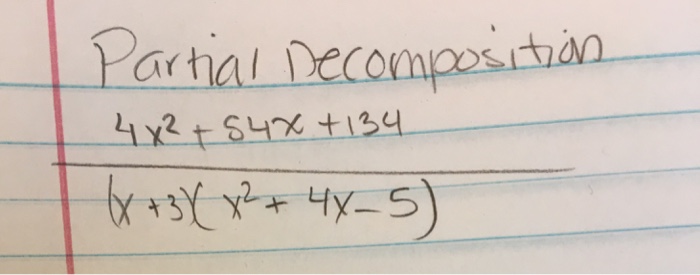 Partial Decomposition
4x² + 54x + 134
(x + 3)(x² + 4x - 5)